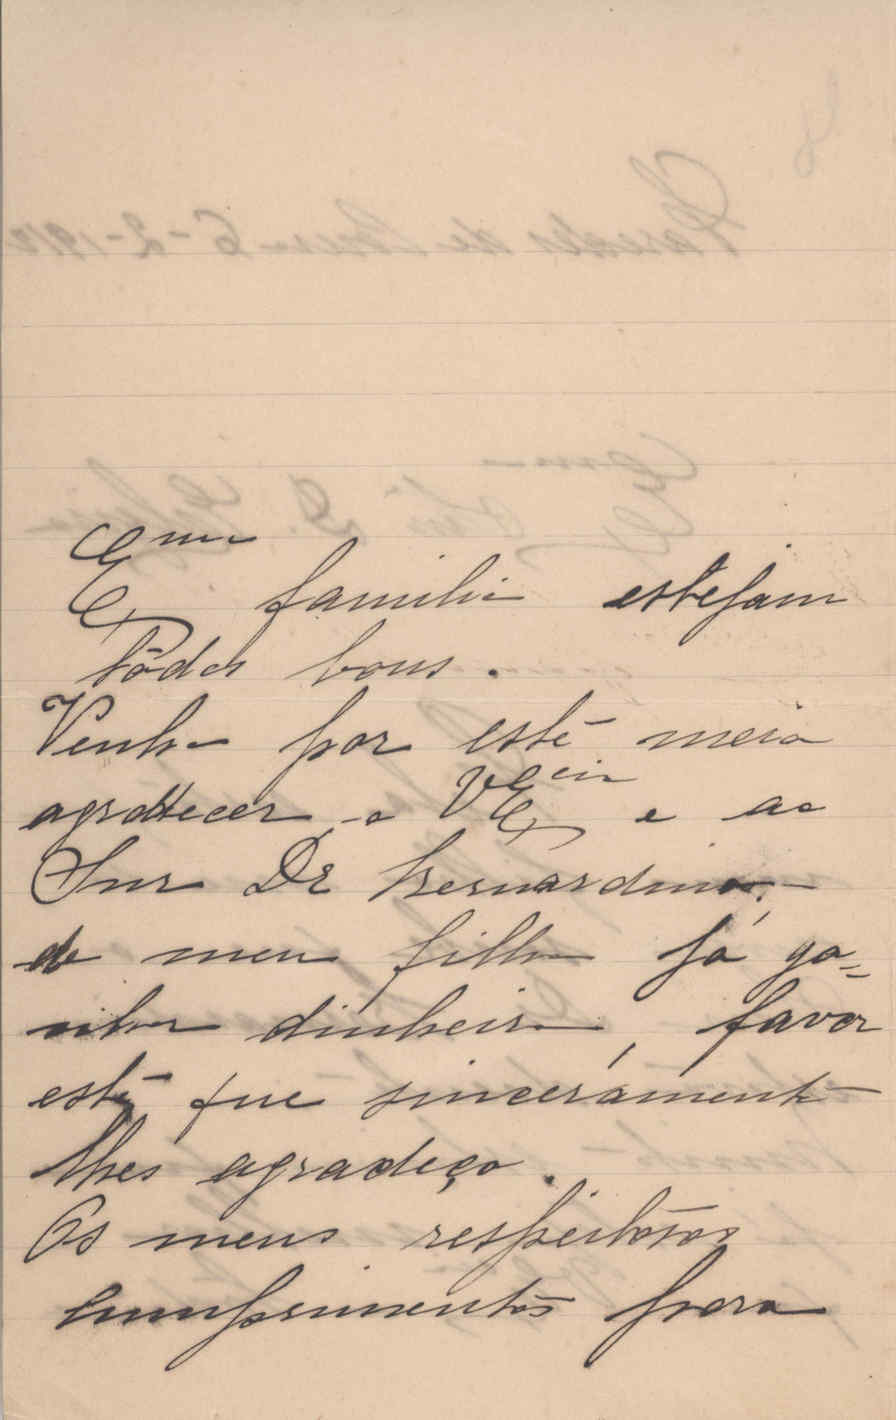 Exma familia estejam
tôdos bons.
Venho por este meio
agradecer a V Excia e ao
Snr Dr Bernardino,
de meu filho já ga=
nhar dinheiro, favor
este que sinceramente
lhes agradeço.
Os meus respeitosos
cumprimentos para